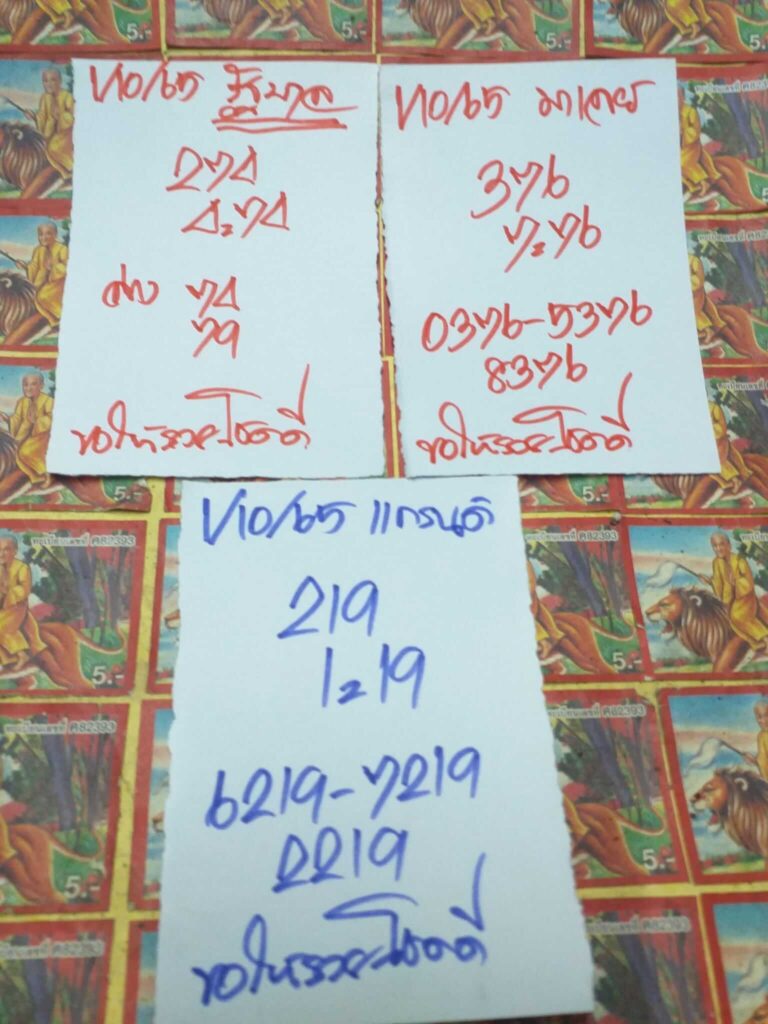 1/10/65 รัฐบาล
274
4=74
ล่าง 74
79
ขอให้รวยโชคดี
1/10/65 มาเลย์
376
7=76
0376-5376
8376
ขอให้รวยโชคดี
1/10/65 แกรนด์
219
1=19
6219-7219
2219
ขอให้รวยโชคดี
ทะเบียนเลขที่ ค82393
5.-